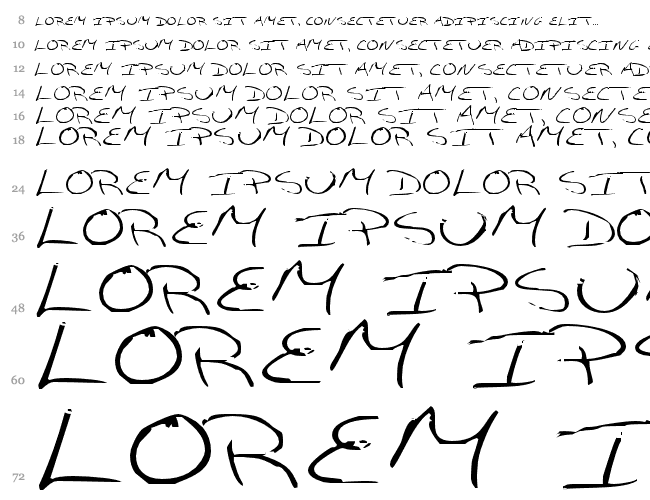 8 LOREM IPSUM DOLOR SIT AMET, CONSECTETUER ADIPISCING ELIT...
10 LOREM IPSUM DOLOR SIT AMET, CONSECTETUER ADIPISCING
12 LOREM IPSUM DOLOR SIT AMET, CONSECTETUER AD
14 LOREM IPSUM DOLOR SIT AMET, CONSECTE
16 LOREM IPSUM DOLOR SIT AMET, CONSE
18 LOREM IPSUM DOLOR SIT AMET, CO
24 LOREM IPSUM DOLOR SIT
36 LOREM IPSUM DO
48 LOREM IPSU
60 LOREM IPS
72 LOREM I